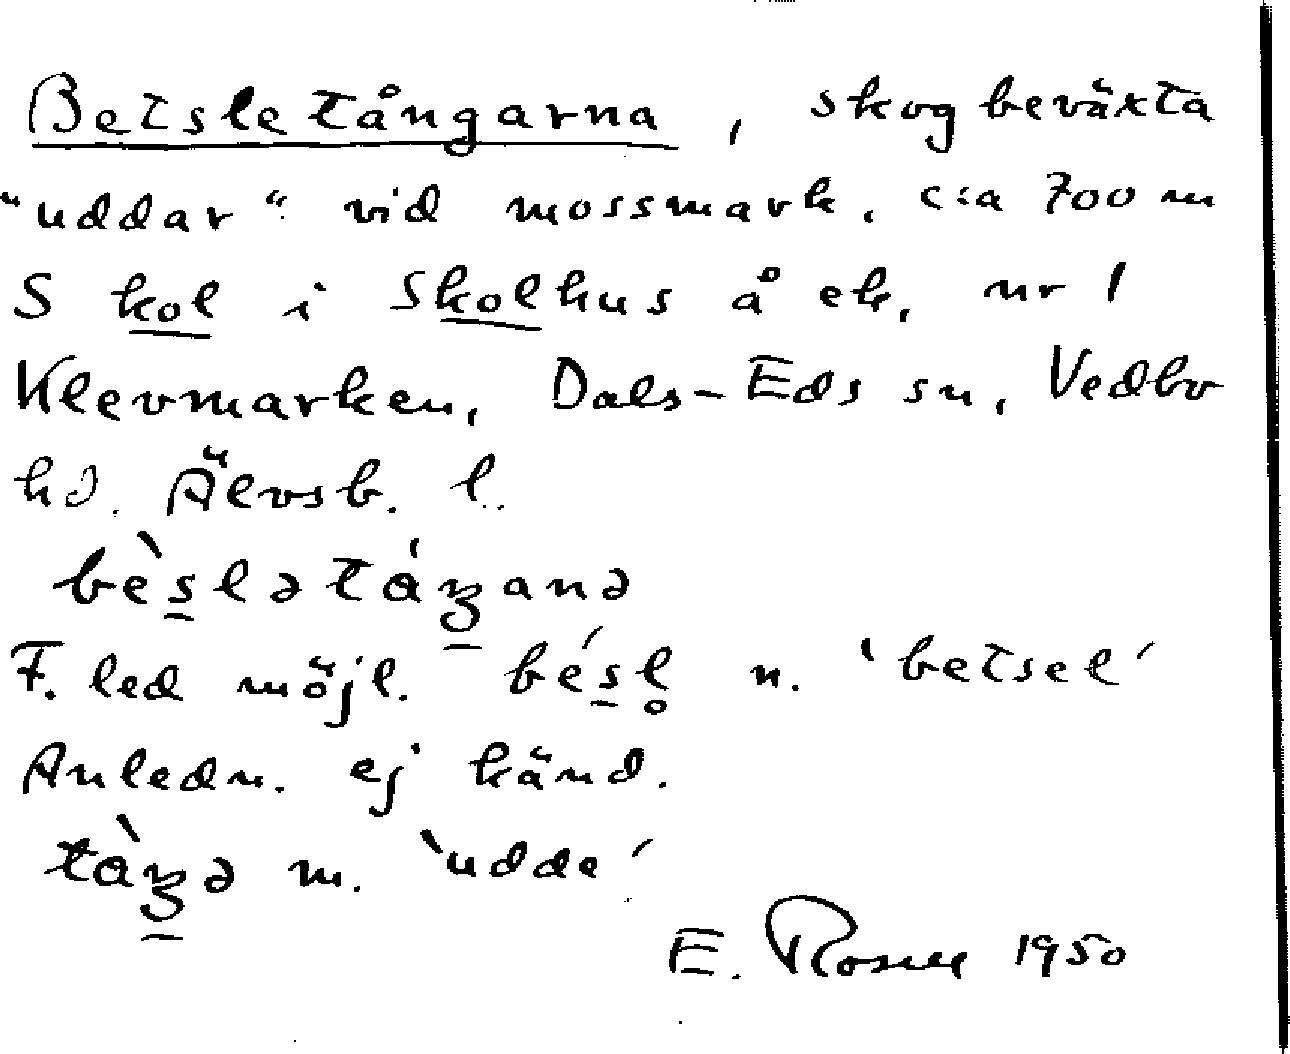 Betsletångarna, skogbeväxta
"uddar" vid mossmark, c:a 700 m
S kol i Skolhus å ek, nr 1
Klevmarken, Dals-Eds sn, Vedbo
hd. Älvsb. l.
bèslətáʒanə
F. led möjl. bésl̥ n. 'betsel'
Anledn. ej känd.
tàʒə m. 'udde'
E. Rosell 1950